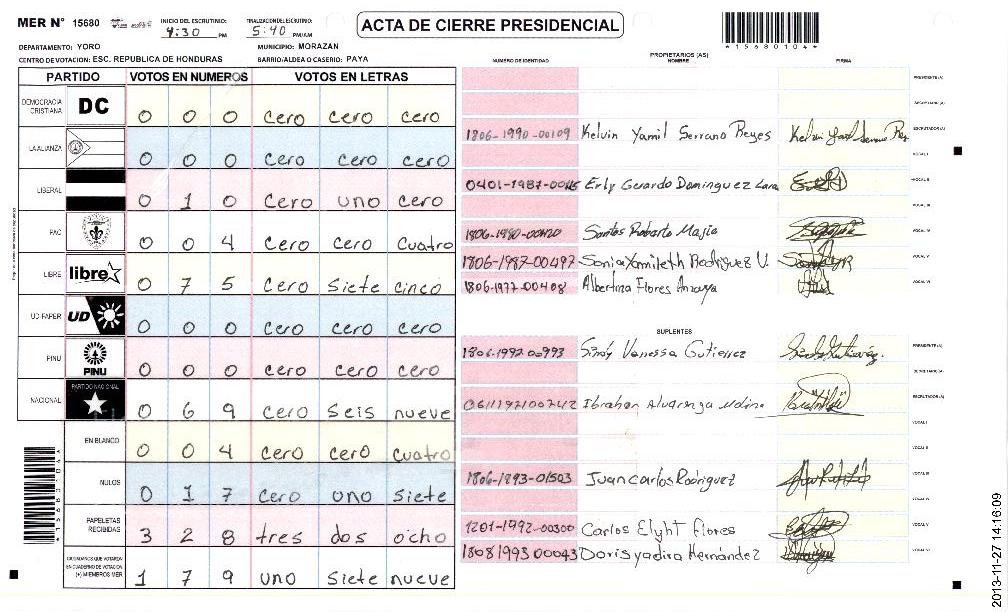 MER N° 15680
INICIO DEL ESCRUTINIO: 4:30 PM
FINALIZACION DEL ESCRUTINIO: 5:40 PM/AM
ACTA DE CIERRE PRESIDENCIAL
*15680104*
DEPARTAMENTO: YORO
MUNICIPIO: MORAZAN
CENTRO DE VOTACION: ESC. REPUBLICA DE HONDURAS
BARRIO/ALDEA O CASERIO: PAYA
PARTIDO VOTOS EN NUMEROS VOTOS EN LETRAS
DEMOCRACIA CRISTIANA DC 0 0 0 cero cero cero
LA ALIANZA 0 0 0 cero cero cero
LIBERAL 0 1 0 cero uno cero
PAC 0 0 4 cero cero cuatro
LIBRE libre 0 7 5 cero siete cinco
UD-FAPER UD 0 0 0 cero cero cero
PINU PINU 0 0 0 cero cero cero
NACIONAL PARTIDO NACIONAL 0 6 9 cero seis nueve
EN BLANCO 0 0 4 cero cero cuatro
NULOS 0 1 7 cero uno siete
PAPELETAS RECIBIDAS 3 2 8 tres dos ocho
CIUDADANOS QUE VOTARON EN CUADERNO DE VOTACION (+) MIEMBROS MER 1 7 9 uno siete nueve
*15680104*
PROPIETARIOS (AS)
NUMERO DE IDENTIDAD NOMBRE FIRMA
PRESIDENTE(A)
SECRETARIO(A)
1806-1990-00109 Kelvin Yamil Serrano Reyes ESCRUTADOR(A)
VOCAL I
0401-1987-00 Erly Gerardo Dominguez Lara VOCAL II
VOCAL III
1806-1980-00420 Santos Roberto Mejia VOCAL IV
1806-1987-00497 Sonia Yamileth Rodriguez V. VOCAL V
1806-1977-00408 Albertina Flores VOCAL VI
SUPLENTES
1806-1992 00993 Sindy Vanessa Gutierrez PRESIDENTE(A)
SECRETARIO(A)
0611197100742 Ibrahan Alvarenga Molina ESCRUTADOR(A)
VOCAL I
VOCAL II
1806-1993-01503 Juan carlos Rodriguez VOCAL III
VOCAL IV
1201-1992-00300 Carlos Elyht flores VOCAL V
1808199300043 Doris yadira Hernández VOCAL VI
2013-11-27 14:16:09